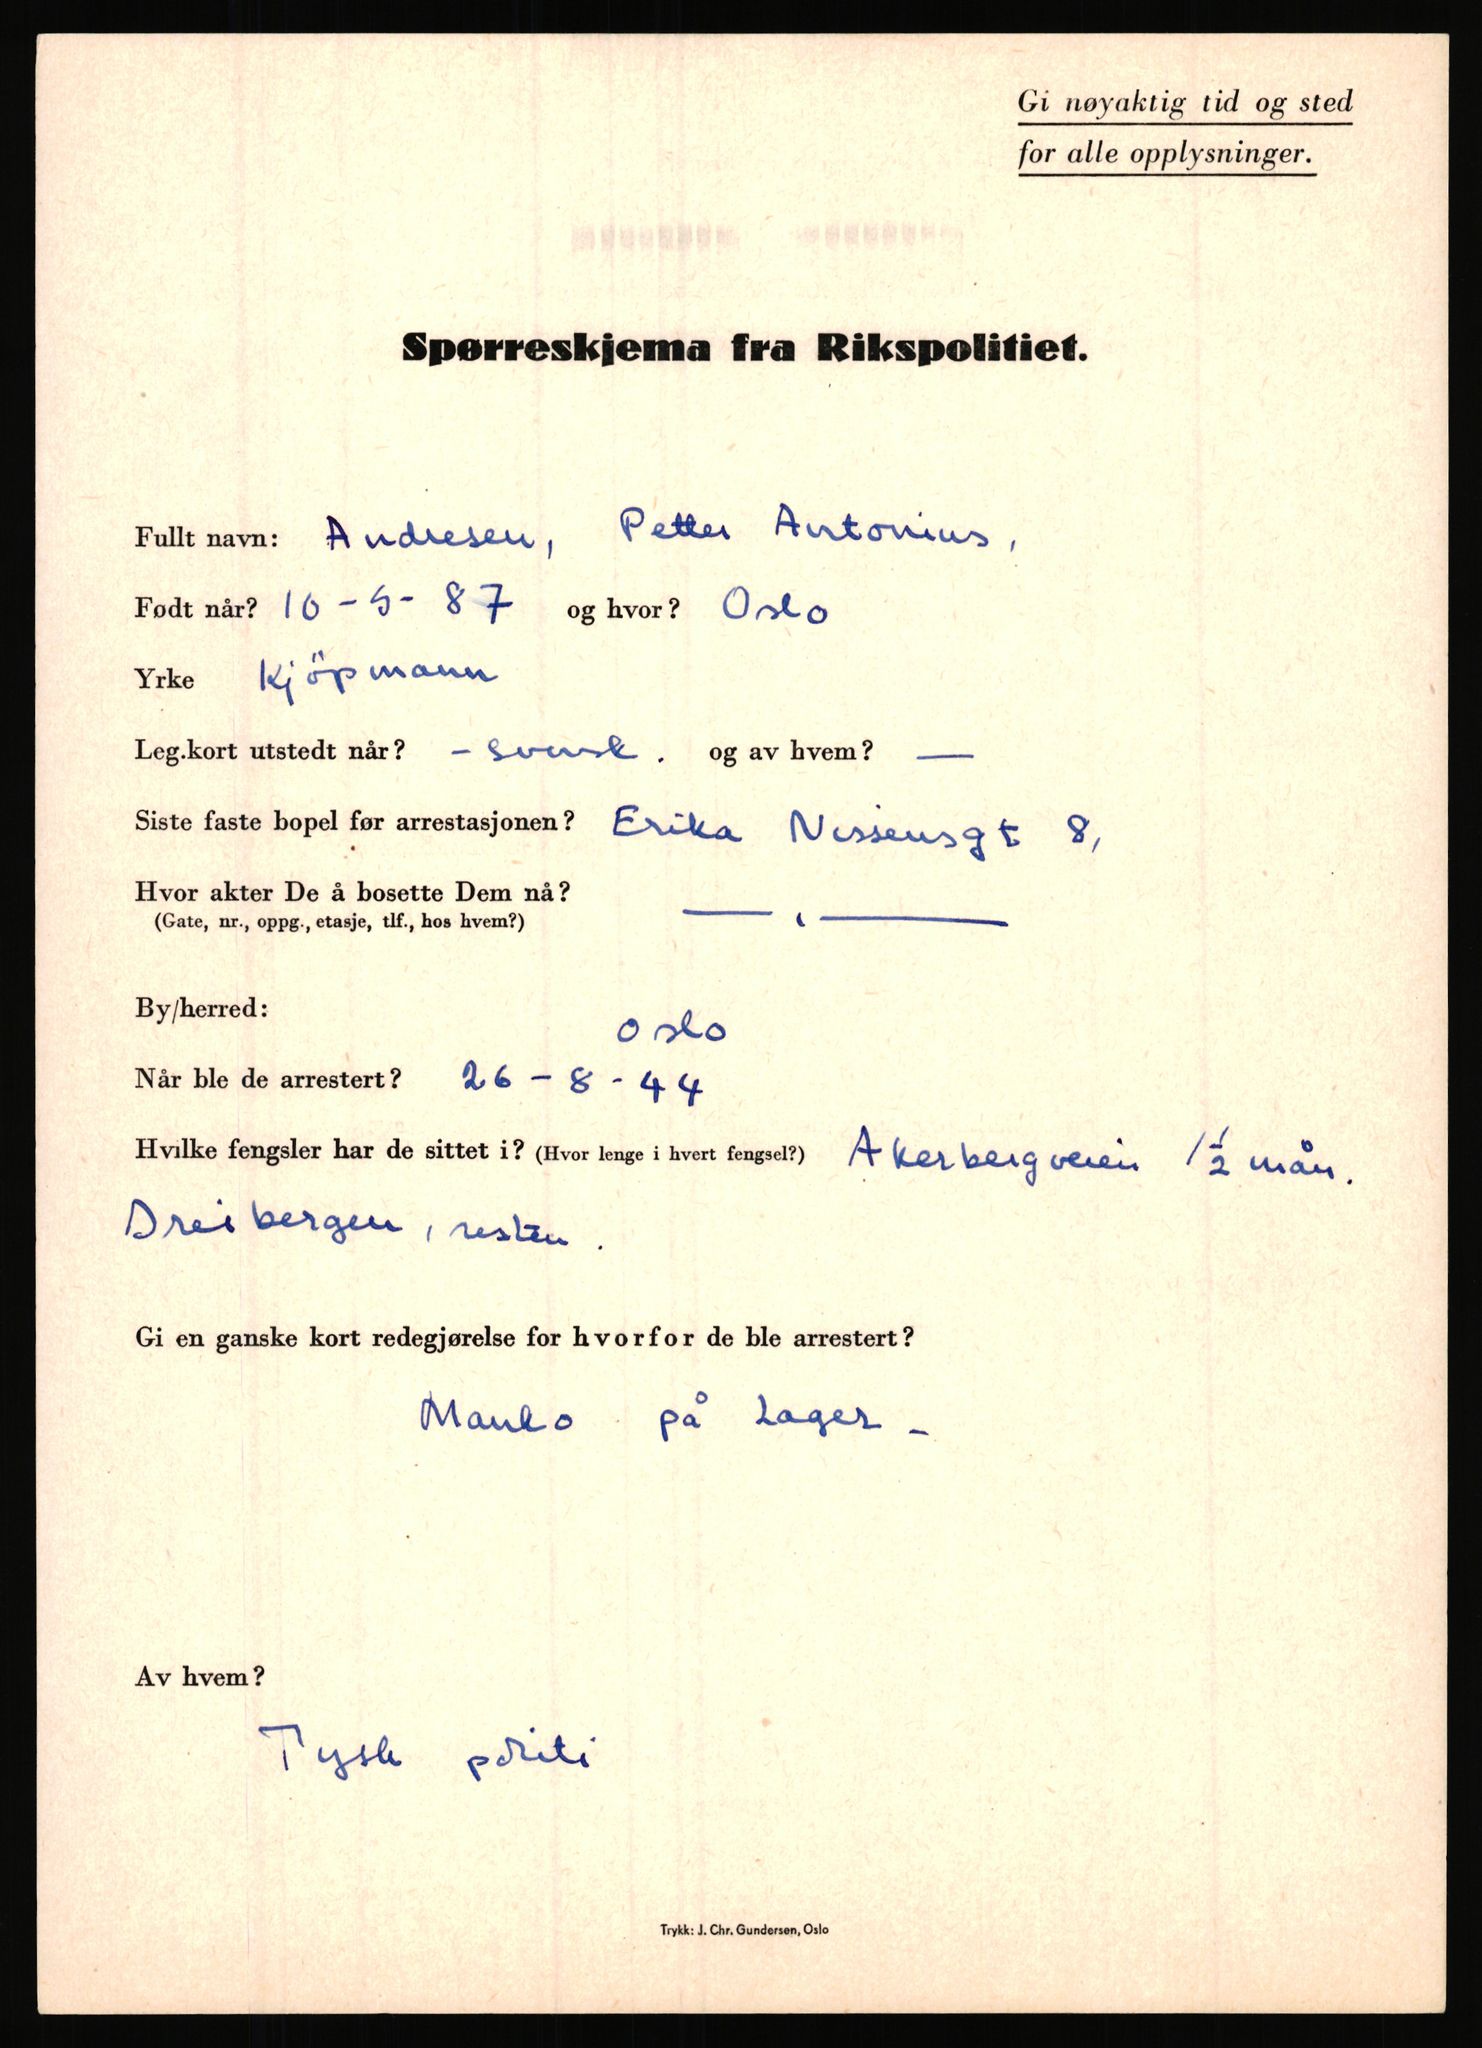 Gi nøyaktig tid og sted
for alle opplysninger.
Spørreskjema fra Rikspolitiet.
Fullt navn: Andresen, Petter Antonius,
Født når? 10-5-87 og hvor? Oslo
Yrke Kjöpmann
Leg.kort utstedt når? - svensk. og av hvem? —
Siste faste bopel før arrestasjonen? Erika Nissensgt 8,
Hvor akter De å bosette Dem nå?
(Gate, nr., oppg., etasje, tlf., hos hvem?) — , —
By/herred: Oslo
Når ble de arrestert? 26-8-44
Hvilke fengsler har de sittet i? (Hvor lenge i hvert fengsel?) Akerbergveien 1½ mån.
Dreibergen, resten.
Gi en ganske kort redegjørelse for hvorfor de ble arrestert?
Manko på Lager -
Av hvem?
Tysk politi
Trykk: J. Chr. Gundersen, Oslo